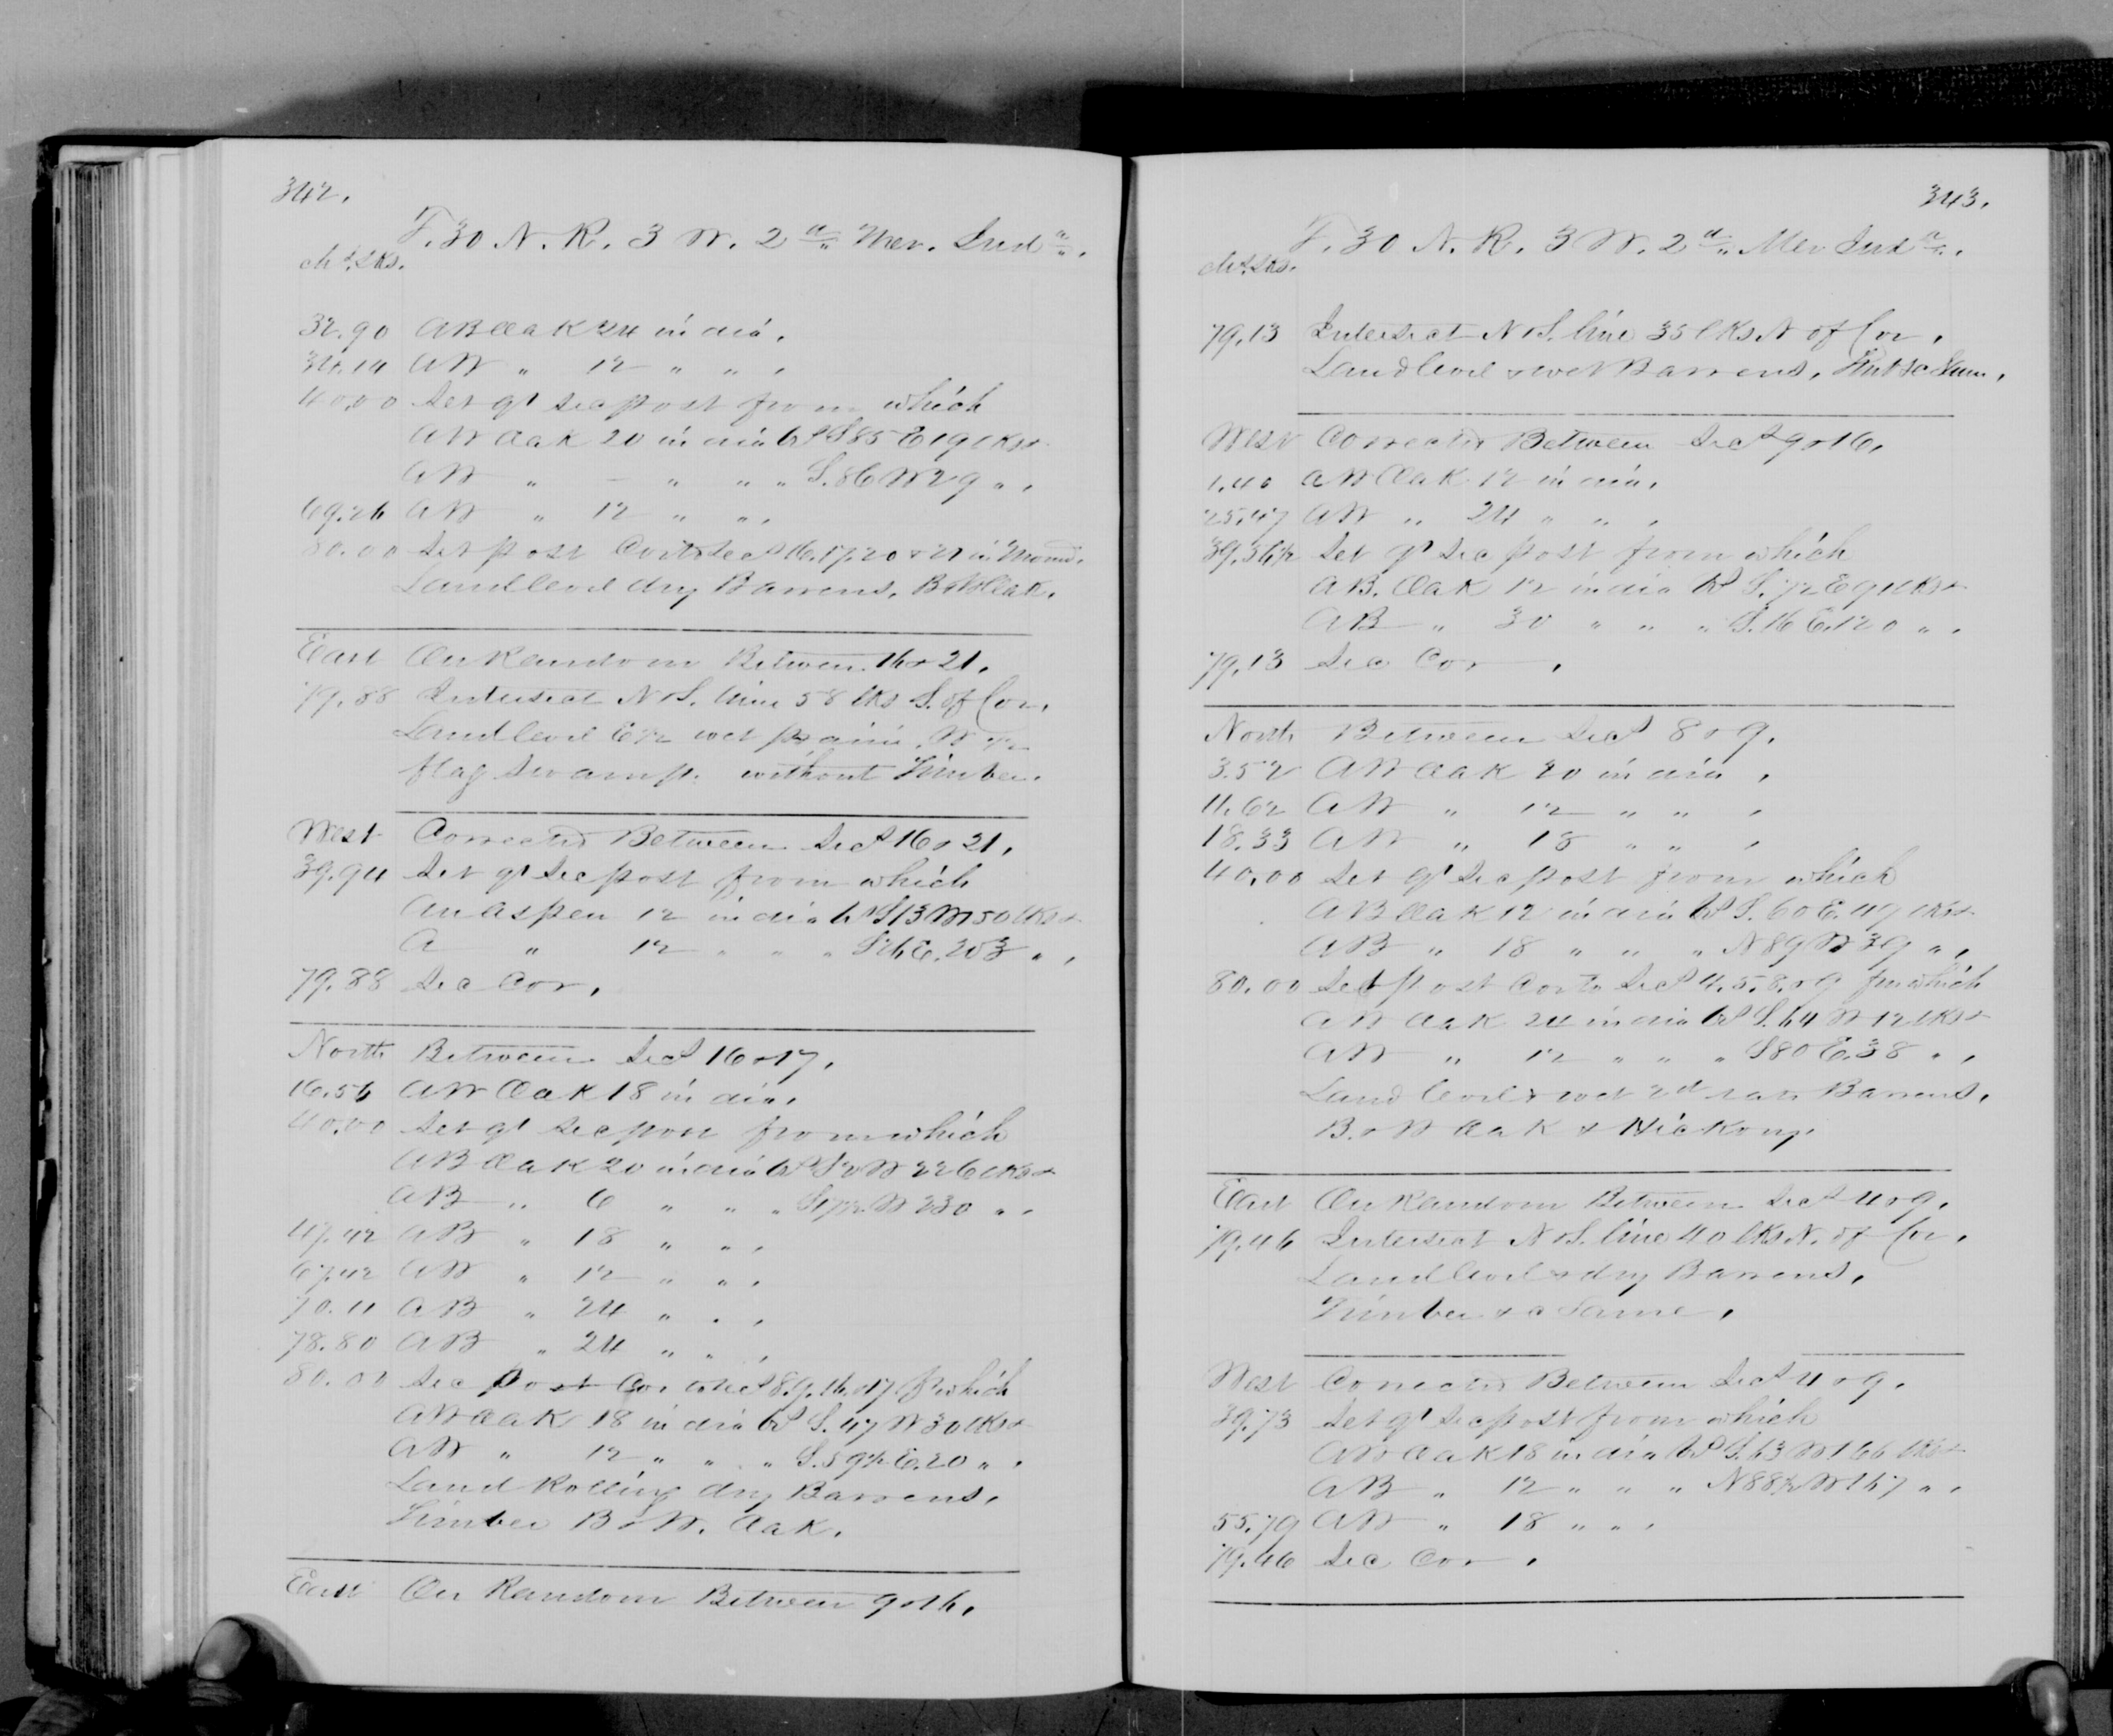 342.
T. 30 N. R. 3 W. 2d Mer. Inda.
chs. lks.
32.90 A B Oak 24 in dia.
A W " 12 " " ,
40.00 Set qr sec post from which
A W Oak 20 in dia brs S 85 E 19 lks &
A W " – " " " S. 86 W 29 " ,
69.26 A W " 12 " " ,
80.00 Set post Cor to Secs 16. 17. 20 & 21 in Mound.
Land level dry Barrens, B & W Oak.
East On Random Between 16 & 21.
79.88 Intersect N & S. line 58 lks S. of Cor.
Land level E ½ wet prairie, W ½
flag swamp. without Timber.
West Corrected Between Secs 16 & 21.
39.94 Set qr sec post from which
An Aspen 12 in dia brs S 13 W 50 lks &
A " 12 " " " E. 203 " ,
79.88 Sec Cor.
North Between Secs 16 & 17.
16.56 A W Oak 18 in dia.
40.00 Set qr sec post from which
A B Oak 20 in dia brs S 2 W 226 lks &
A B " 6 " " " W 230 " ,
47.42 A B " 18 " " ,
67.42 A W " 12 " " ,
70.11 A B " 24 " " ,
78.80 A B " 24 " " ,
80.00 Sec post Cor to Secs 8. 9. 16. & 17. fr which
A W Oak 18 in dia brs S. 47 W 30 lks &
A W " 12 " " " S. 59½ E. 20 " ,
Land Rolling dry Barrens,
Timber B & W. Oak.
East On Random Between 9 & 16.
343.
T. 30 N. R. 3 W. 2d Mer Inda.
chs. lks.
79.13 Intersect N & S. line 35 lks N of Cor.
Land level & wet Barrens, Timb &c Same.
West Corrected Between Secs 9 & 16.
1.40 A W Oak 12 in dia.
25.47 A W " 24 " " ,
39.56½ Set qr sec post from which
A B. Oak 12 in dia brs S. 72 E 91 lks &
A B " 30 " " " S. 16 E. 120 " ,
79.13 Sec Cor ,
North Between Secs 8 & 9.
3.52 A W Oak 20 in dia ,
11.62 A W " 12 " " ,
18.33 A W " 18 " " ,
40.00 Set qr sec post from which
A B Oak 12 in dia brs S. 60 E. 49 lks &
A B " 18 " " " N 89 W 39 " ,
80.00 Set post Cor to Secs 4. 5. 8. & 9 from which
A W Oak 24 in dia brs S. 64 W 12 lks &
A W " 12 " " " S 80 E. 38 " ,
Land level & wet 2d rate Barrens,
B. & W Oak & Hickory.
East On Random Between Secs 4 & 9.
79.46 Intersect N & S. line 40 lks N. of Cor.
Land level & dry Barrens,
Timber &c Same.
West Corrected Between Secs 4 & 9.
39.73 Set qr sec post from which
A W Oak 18 in dia brs S. 63 W 166 lks &
A B " 12 " " " N 88½ W 167 " ,
55.79 A W " 18 " " ,
79.46 Sec Cor .